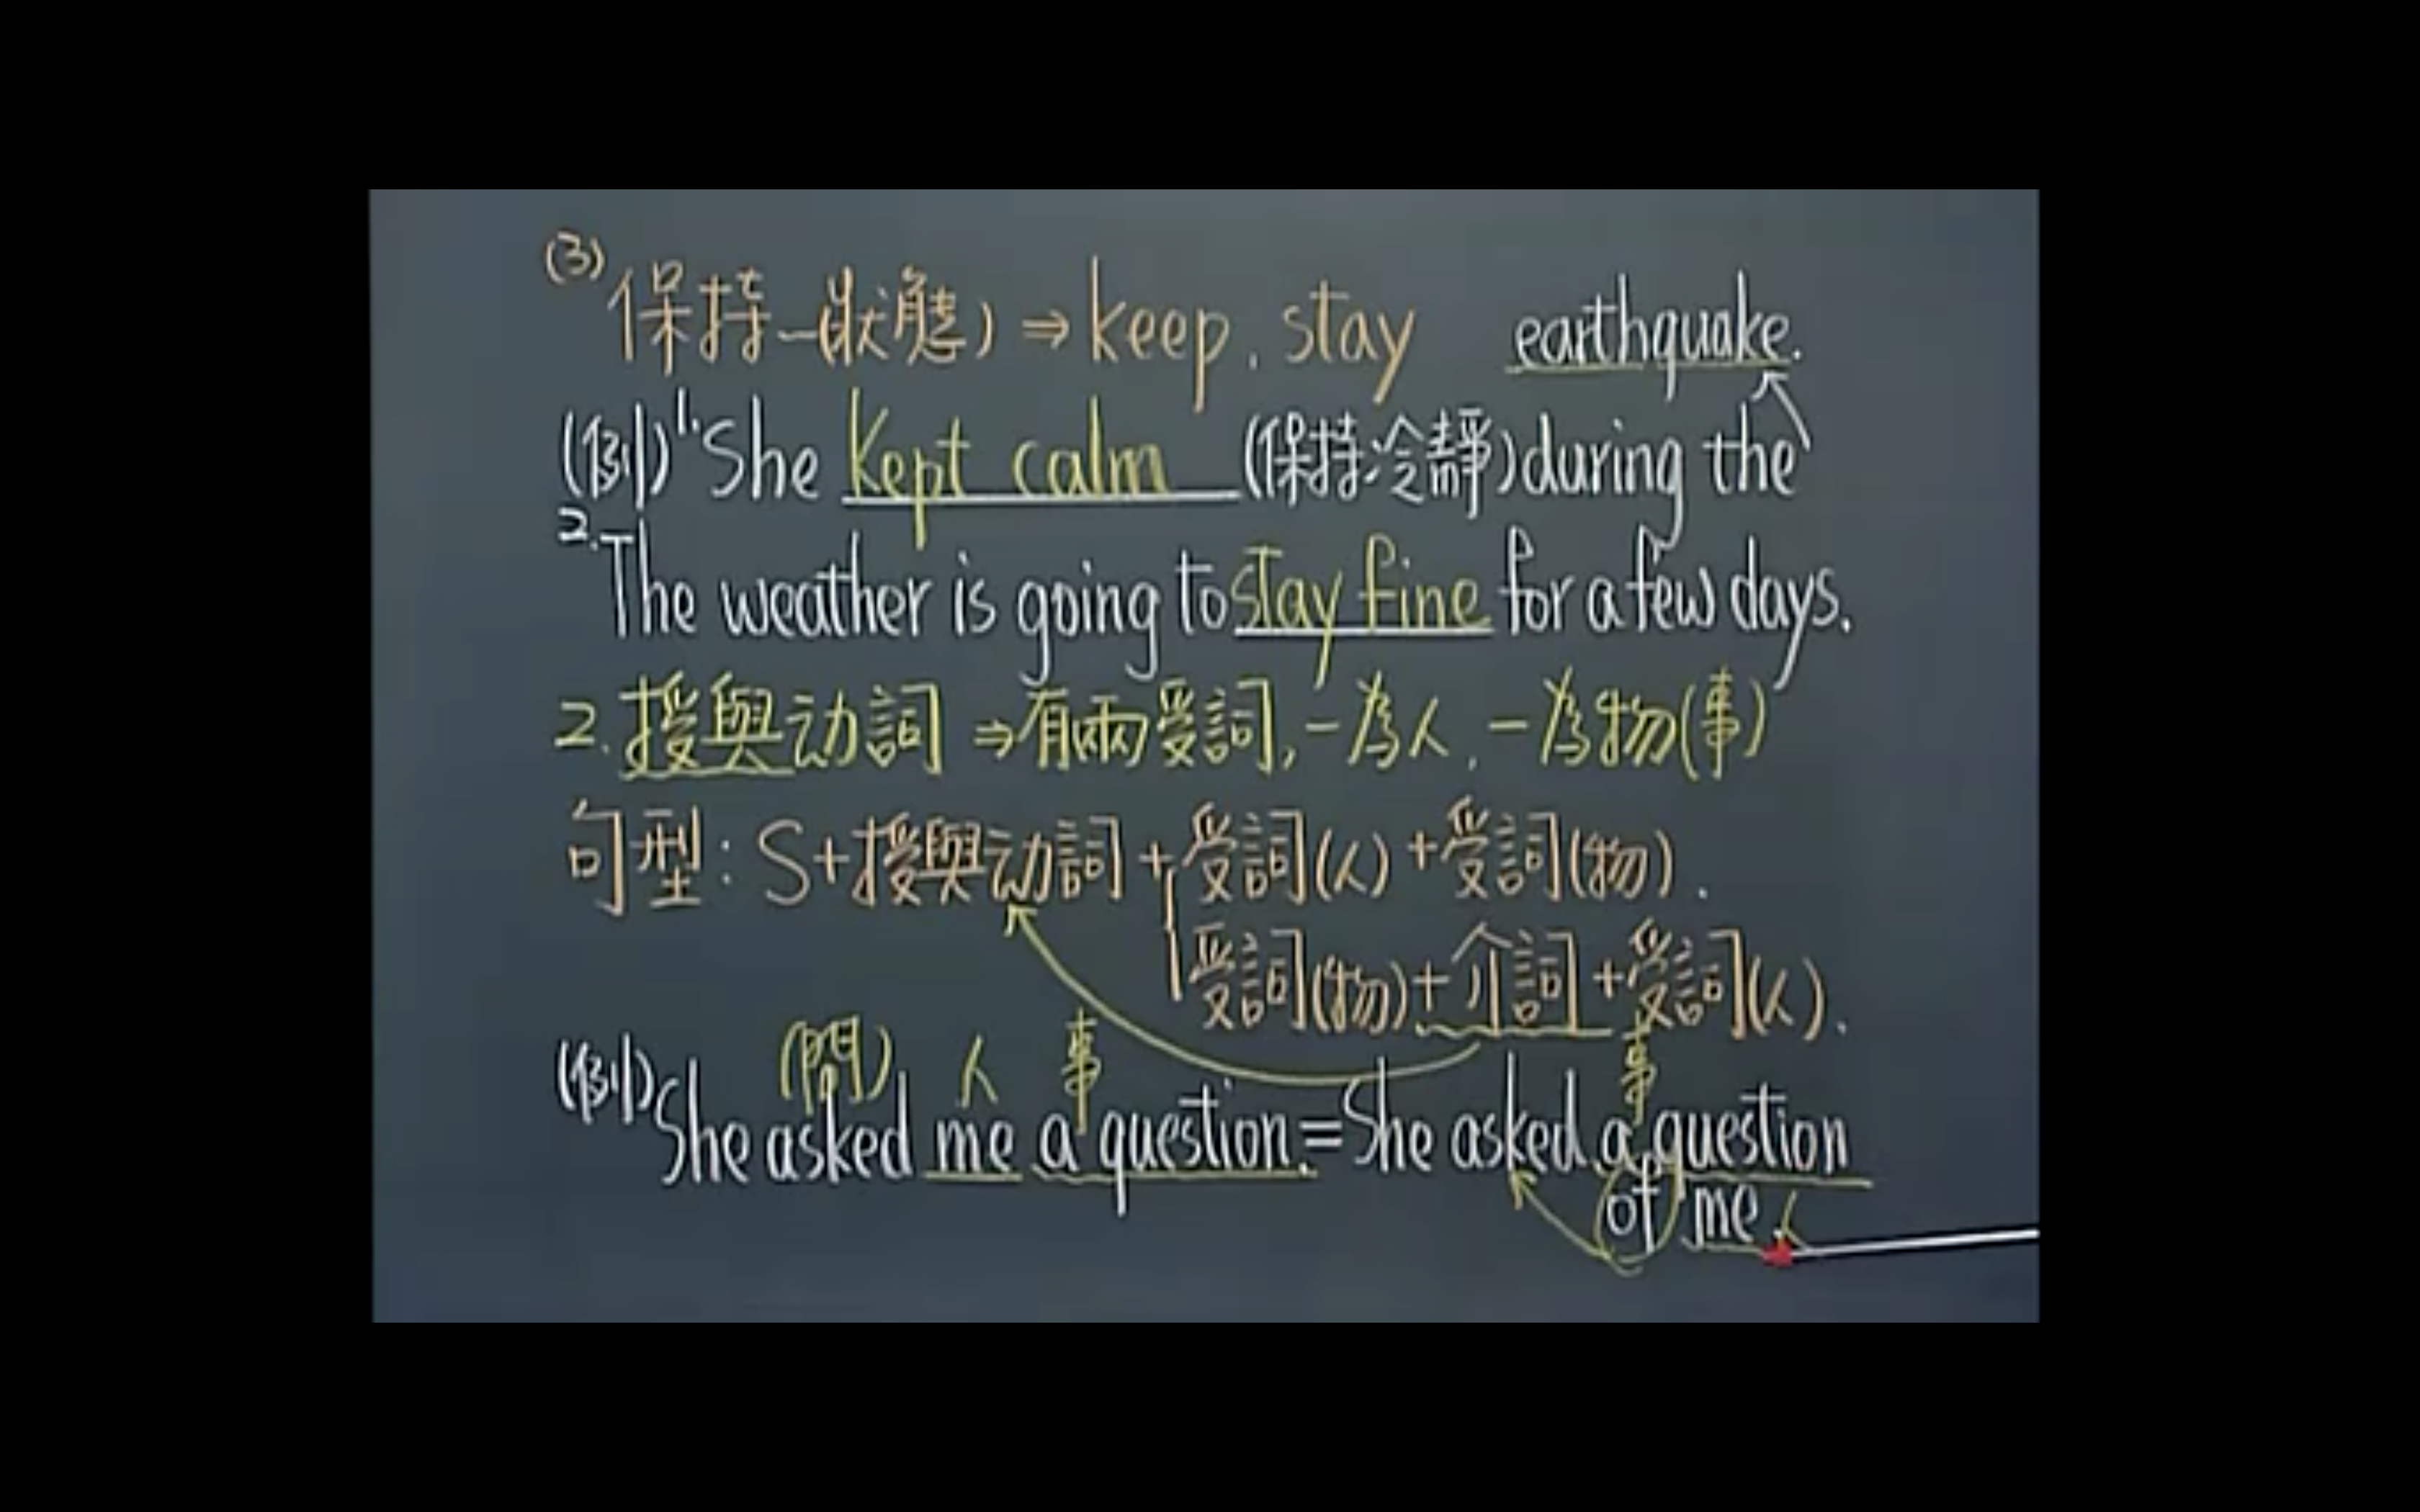 (3) 保持(一狀態) ⇒ keep, stay
(例) 1. She kept calm (保持冷靜) during the earthquake.
2. The weather is going to stay fine for a few days.
2. 授與动詞 ⇒ 有兩受詞, 一為人, 一為物(事)
句型: S+授與动詞+受詞(人)+受詞(物).
受詞(物)+介詞+受詞(人).
(問) 人 事 事
(例) She asked me a question. = She asked a question
of me. 人